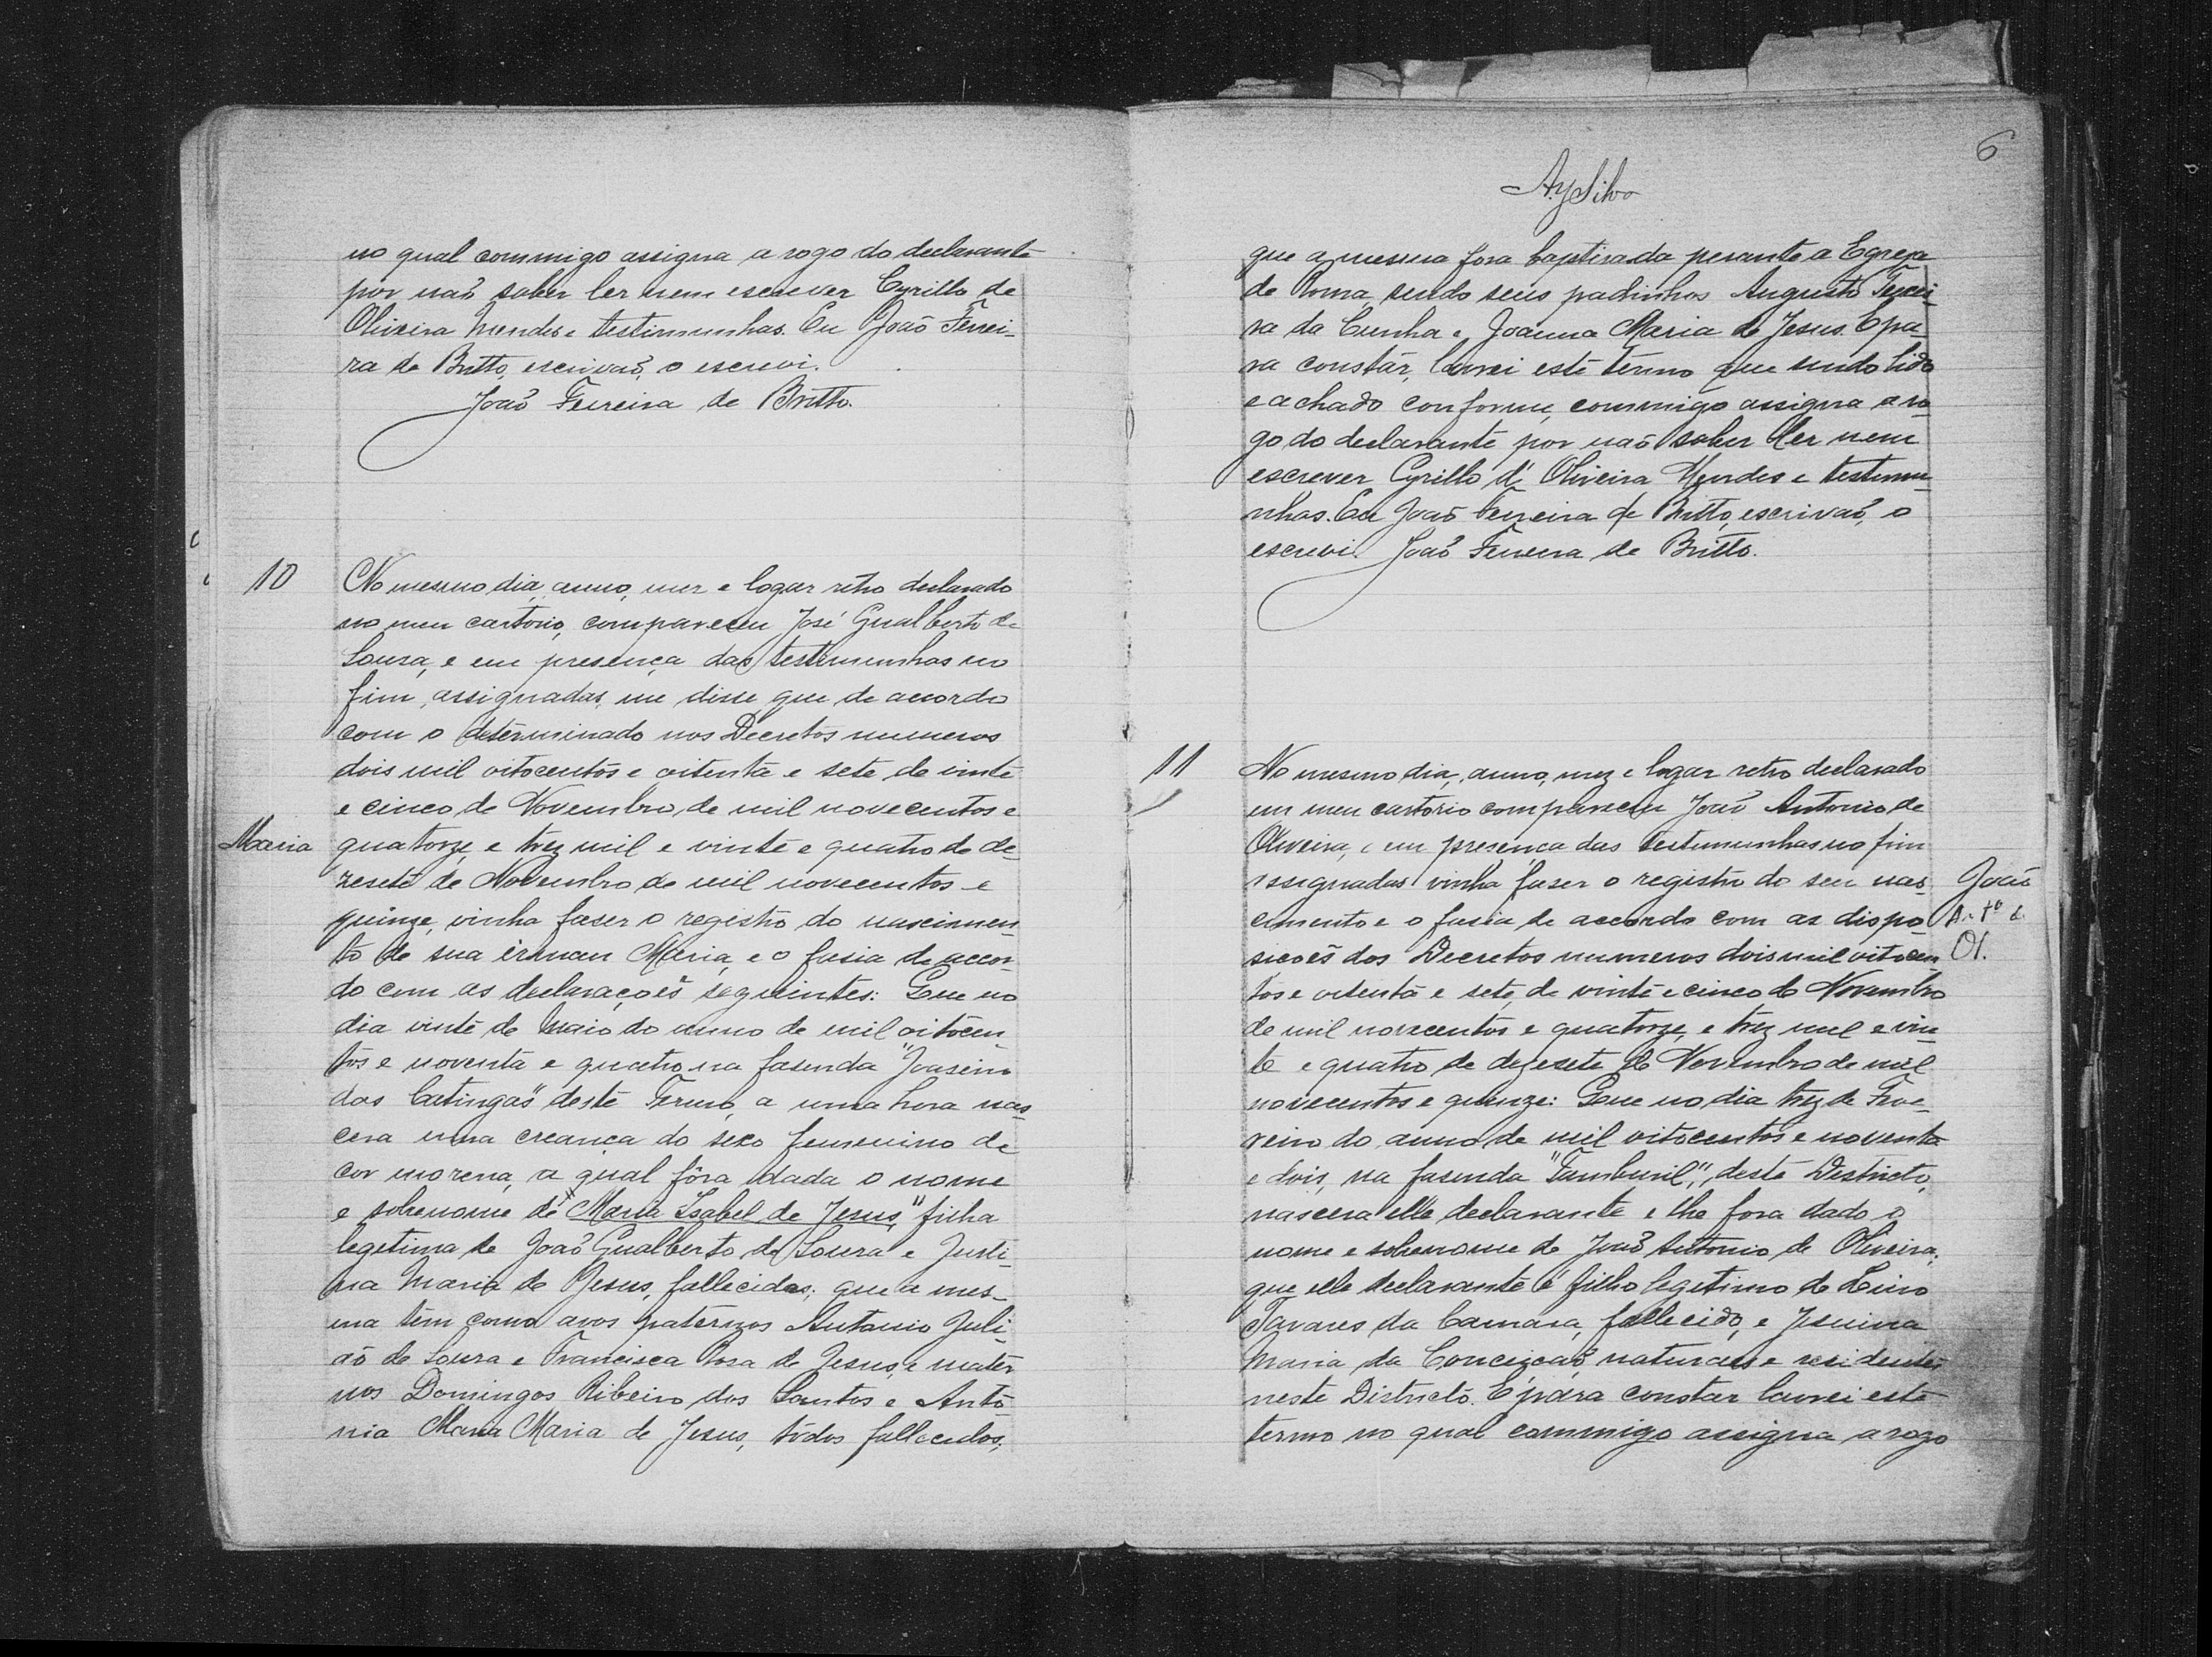 no qual commigo assigna a rogo do declarante
por não saber ler nem escrever Cyrillo de
Oliveira Mendes e testimunhas. Eu João Ferrei-
ra de Britto, escrivão, o escrevi.
João Ferreira de Britto.
10
No mesmo dia, anno, mez e logar retro declarado
no meu cartorio, compareceu José Gualberto de
Souza, e em presença das testimunhas no
fim assignadas, me disse que de acordo
com o determinado nos Decretos numeros
dois mil oitocentos e oitenta e sete de vinte
e cinco de Novembro de mil novecentos e
Maria
quatorze, e trez mil e vinte e quatro de de-
zesete de Novembro de mil novecentos e
quinze, vinha faser o registro do nascimen-
to de sua irman Maria, e o fasia de accor-
do com as declarações seguintes: Que no
dia vinte de Maio do anno de mil oitocen-
tos e noventa e quatro na fasenda "Joaseiro
das Catingas" deste Termo, a uma hora nas-
cera uma creança do sexo femenino de
cor morena, a qual fôra dada o nome
e sobrenome de "Maria Isabel de Jesus," filha
legetima de João Gualberto de Souza e Justi-
na Maria de Jesus, fallecidos; que a mes-
ma tem como avos paternos Antonio Juli-
ão de Souza e Francisca Rosa de Jesus, e mater-
nos Domingos Ribeiro dos Santos e Anto-
nia Maria Maria de Jesus, todos fallecidos;
6
AySilva
que a mesma fora baptisada perante a Egreja
de Roma, sendo seus padrinhos Augusto Ferrei-
ra da Cunha e Joanna Maria de Jesus. E pa-
ra constár, lavrei este termo que sendo lido
e achado conforme, commigo assigna a ro-
go do declarante por não saber ler nem
escrever Cyrillo d' Oliveira Mendes e testimu-
nhas. Eu João Ferreira de Britto, escrivão, o
escrevi. João Ferreira de Britto.
11
No mesmo dia, anno, mez e logar retro declarado
em meu cartorio compareceu João Antonio de
Oliveira, e em presença das testimunhas no fim
assignadas vinha faser o registro do seu nas-
João
cimento e o fasia de accordo com as dispo-
Anto de
sicoēs dos Decretos numeros dois mil oitocen-
Ol.
tos e oitenta e sete, de vinte e cinco de Novembro
de mil novecentos e quatorze, e trez mil e vin-
te e quatro de dezesete de Novembro de mil
novecentos e quinze: Que no dia trez de Feve-
reiro do anno de mil oitocentos e noventa
e dois, na fasenda "Tamburil," deste Districto,
nascera elle declarante e lhe fora dado o
nome e sobrenome de João Antonio de Oliveira;
que elle declarante é filho legetimo de Lino
Tavares da Camara, fallecido, e Jesuina
Maria da Conceição, naturaes e residentes
neste Districto. E para constar lavrei este
termo no qual commigo assigna a rogo